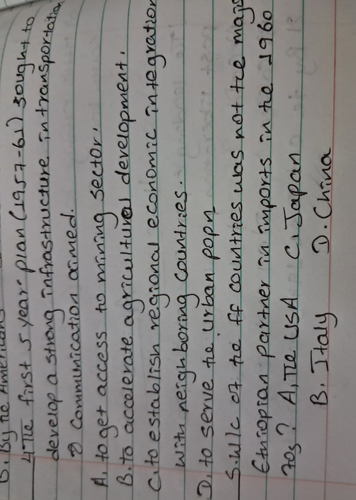 D. By the Americans
4. The first 5 year plan (1957-61) sought to
develop a strong infrastructure in transportation
& communication aimed.
A. to get access to mining sector.
B. to accelerate agricultural development.
C. to establish regional economic integration
with neighboring countries.
D. to serve the urban popn
5. w/c of the ff countries was not the major
Ethiopian partner in imports in the 1960
70s? A, The USA C. Japan
B. Italy D. China